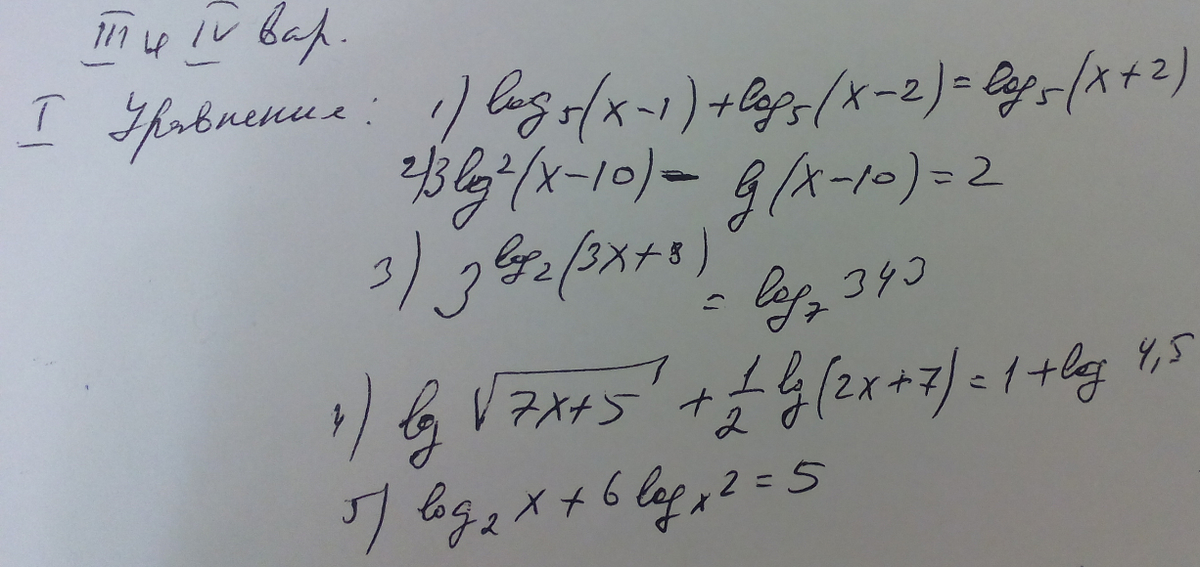 III и IV вар.
I Уравнения: 1) log₅(x-1)+log₅(x-2)=log₅(x+2)
2) 3log²(x-10)- lg(x-10)=2
3) 3^log₂(3x+8) = log₇343
4) log √(7x+5) + 1/2 lg(2x+7)=1+log 4,5
5) log₂x+6logₓ2=5